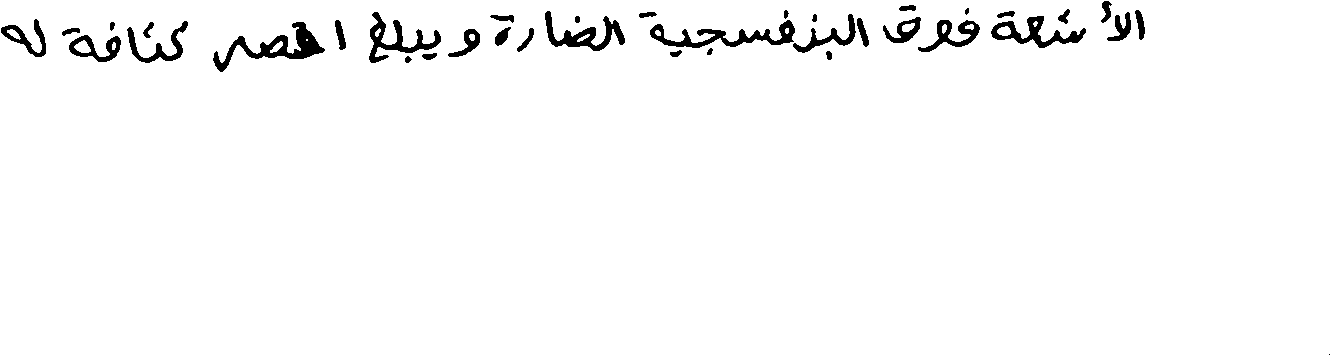 الأشعة فوق البنفسجية الضارة ويبلغ اقصى كثافة له